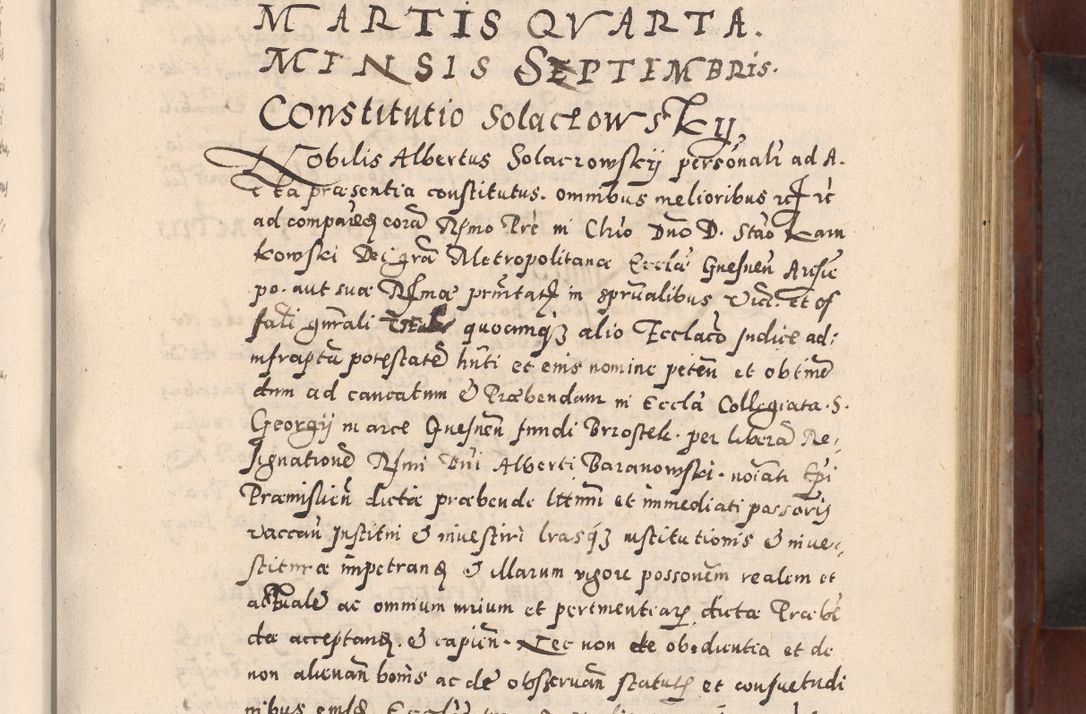 MARTIS QVARTA.
MENSIS SEPTEMBRIS.
Constitutio Solaczowskij
Nobilis Albertus Solaczowskij personalr ad A.
cta præsentia constitutus. omnibus melioribus
ad comparēd corā Rsmo Pre in Chro Dno D. Stāo Karn
kowski Dei grā Metropolitanæ Ecclæ Gnesneñ Archie
po. aut suæ Rsmæ prmtatis in sprualibus vica. et of
fali gnrali quocunq3 alio Ecclaco Judice ad:
infraptā potestatē hnti et eius nomine peteñ et obtinē
dum ad canoatum & Præbendam in Eccla Collegiata. S.
Georgij in arce Gnesneñ fundi Brzostek. per liberā Re:
signationē Rsmi Dni Alberti Baranowski. noiāti Epi
Præmisließ dictæ præbende lttimi et immediati possoris
vaccañ Institui & inuestiri lrasq3 institutionis & inue:
stituræ impetrand & illarum vigore possonem realem et
actualē ac omnium iurium et pertinentiarum dictæ Præbē
dæ acceptand. & capieñ. Nec non de obedientia et de
non alienañ bonis ac de obseruañ statutis et consuetudi
nibus eiusd